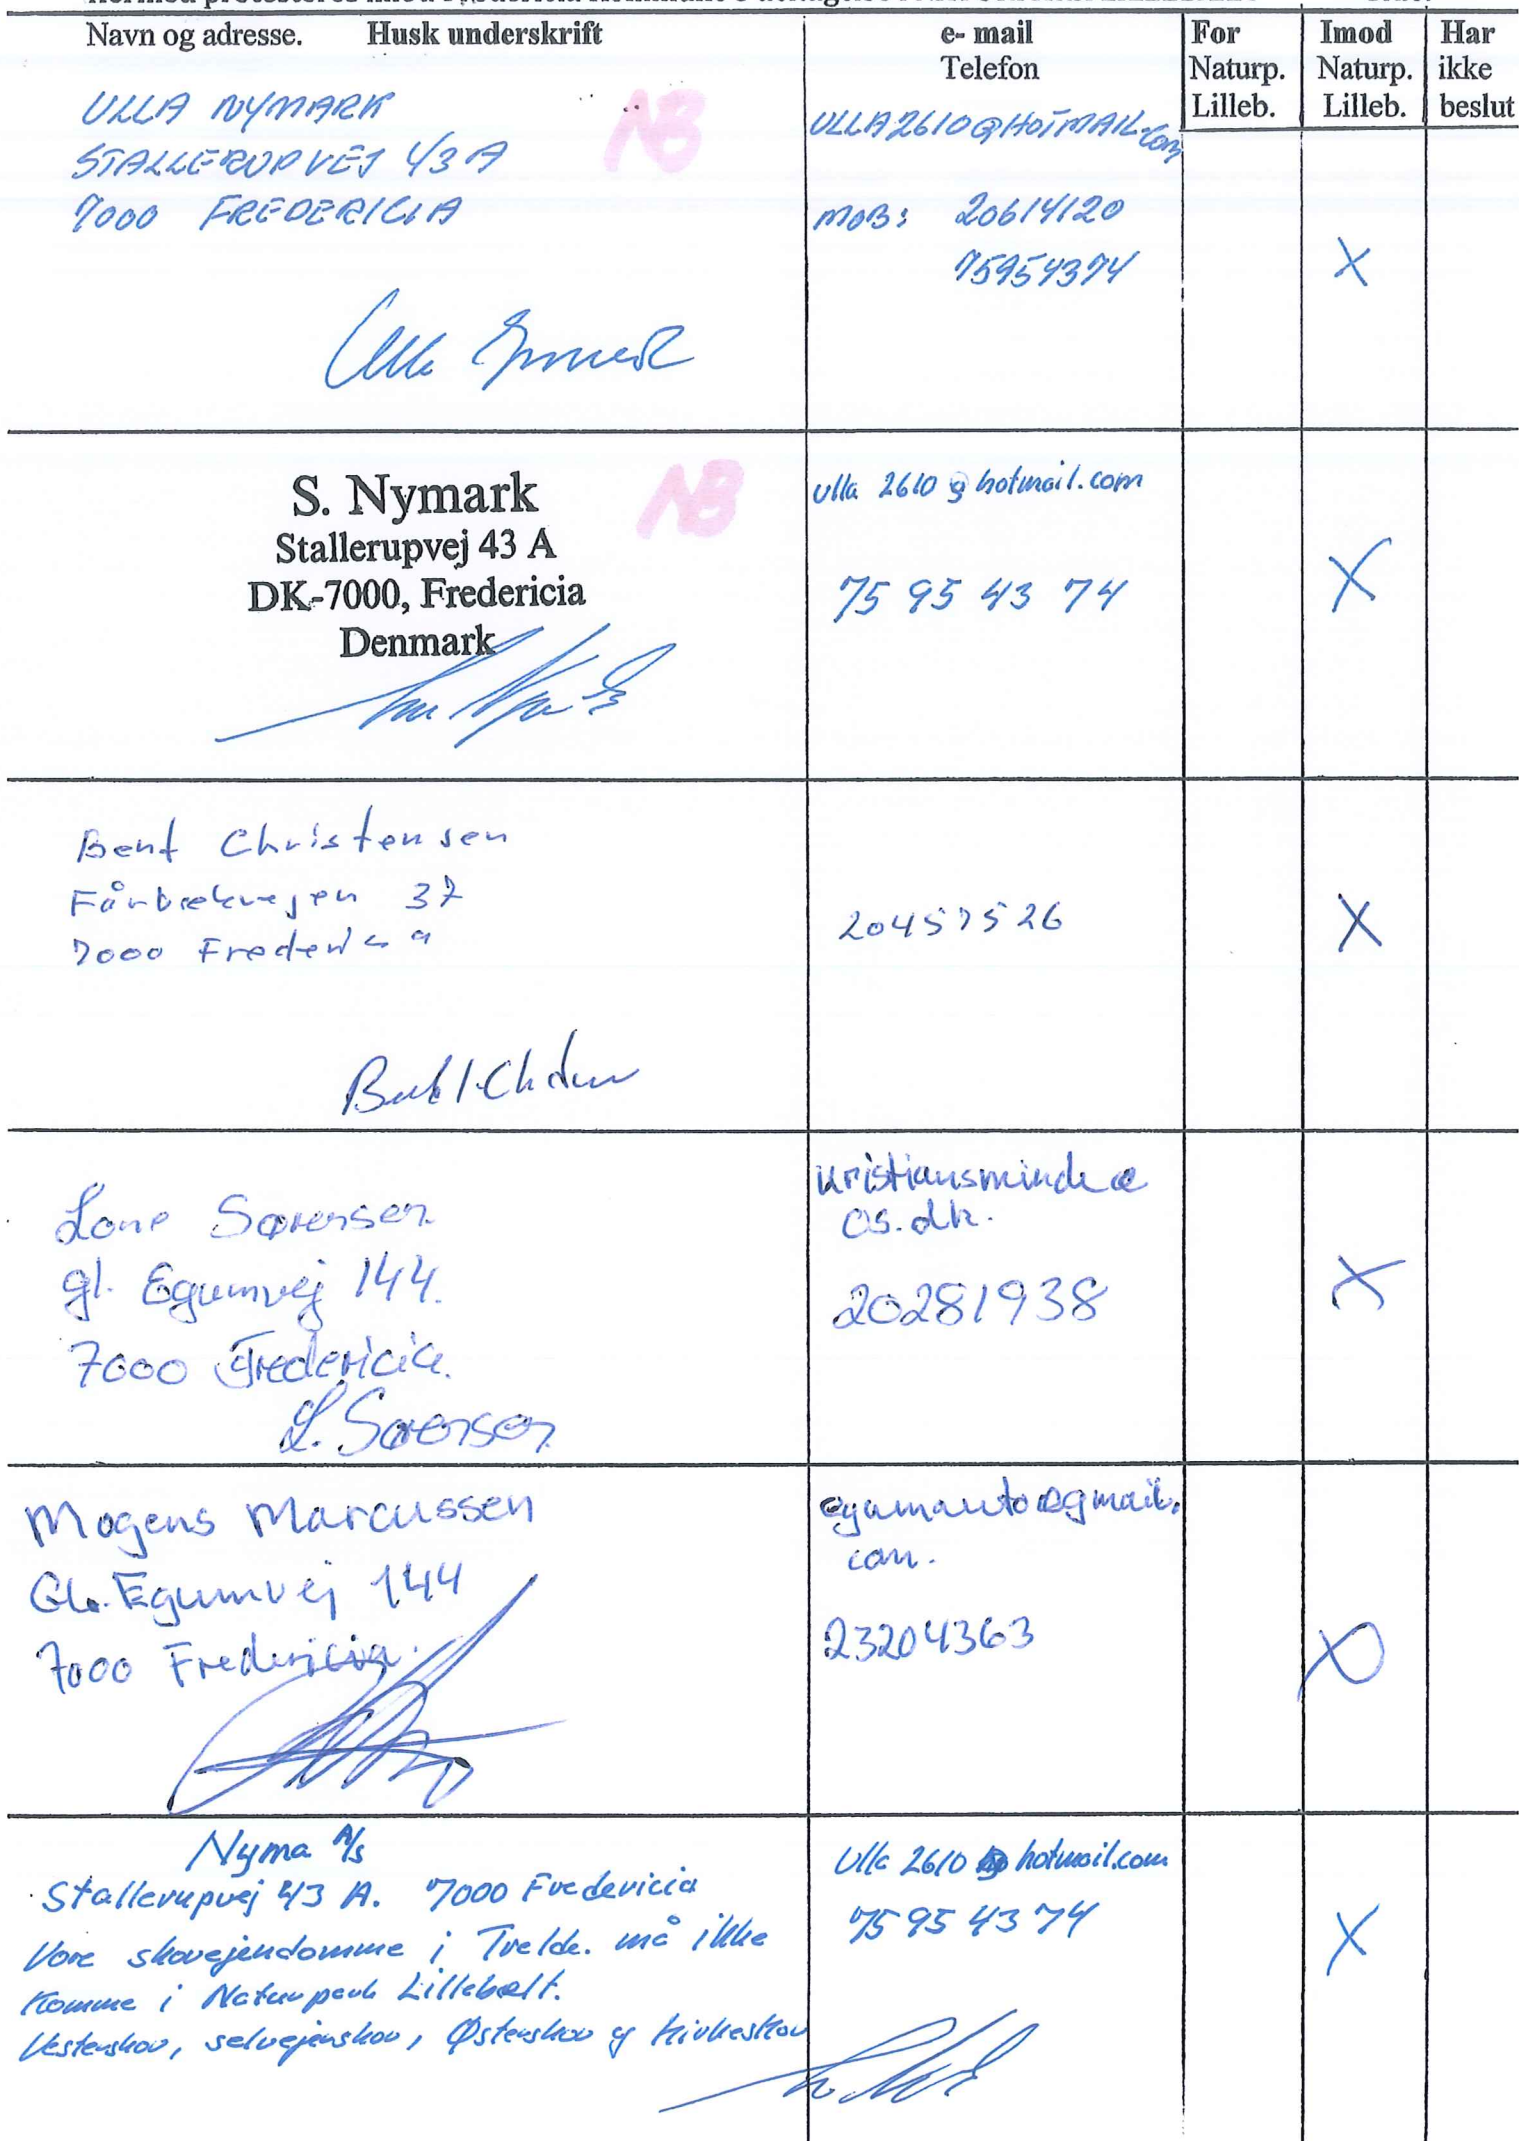 Navn og adresse. Husk underskrift
e- mail
Telefon
For
Naturp.
Lilleb.
Imod
Naturp.
Lilleb.
Har
ikke
beslut
ULLA NYMARK
STALLERUPVEJ 43 A
7000 FREDERICIA
NB
ULLA2610@HOTMAIL.com
MOB: 20614120
75954374
X
S. Nymark
Stallerupvej 43 A
DK-7000, Fredericia
Denmark
NB
ulla 2610 @ hotmail.com
75 95 43 74
X
Bent Christensen
Fårbækvejen 37
7000 Fredericia
20457526
X
Lone Sørensen
gl. Egumvej 144.
7000 Fredericia.
L. Sørensen
kristiansminde@
os.dk.
20281938
X
Mogens Marcussen
Gl. Egumvej 144
7000 Fredericia.
egumauto@gmail.
com.
23204363
X
Nyma A/s
Stallerupvej 43 A. 7000 Fredericia
Vore skovejendomme i Trelde. må ikke
komme i Naturpark Lillebælt.
Vesterskov, selvejerskov, Østerskov og Kirkeskov
Ulla 2610 @ hotmail.com
75 95 43 74
X